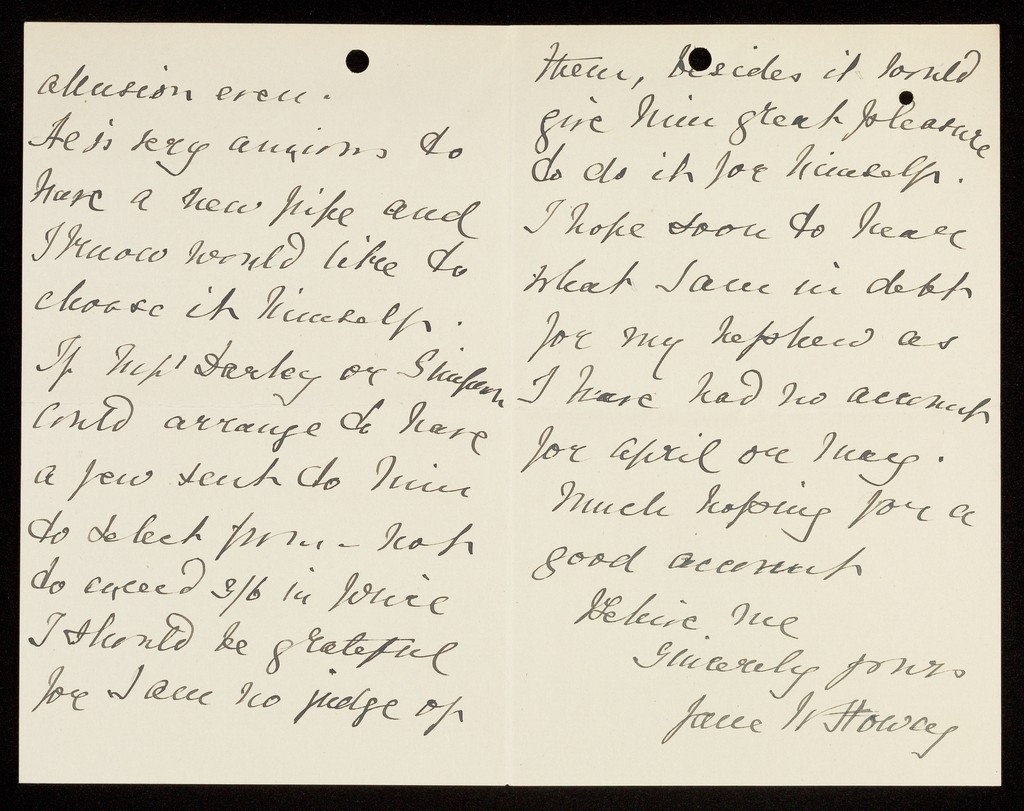 allusion even.
He is very anxious to
have a new pipe and
I know would like to
choose it himself.
If Messrs Darley or Simpson
could arrange to have
a few sent to him
to select from – not
to exceed 3/6 in price
I should be grateful
for I am no judge of
them, besides it would
give him great pleasure
to do it for himself.
I hope soon to hear
what I am in debt
for my nephew as
I have had no account
for April or May.
Much hoping for a
good account
Believe me
Sincerely yours
Jane W